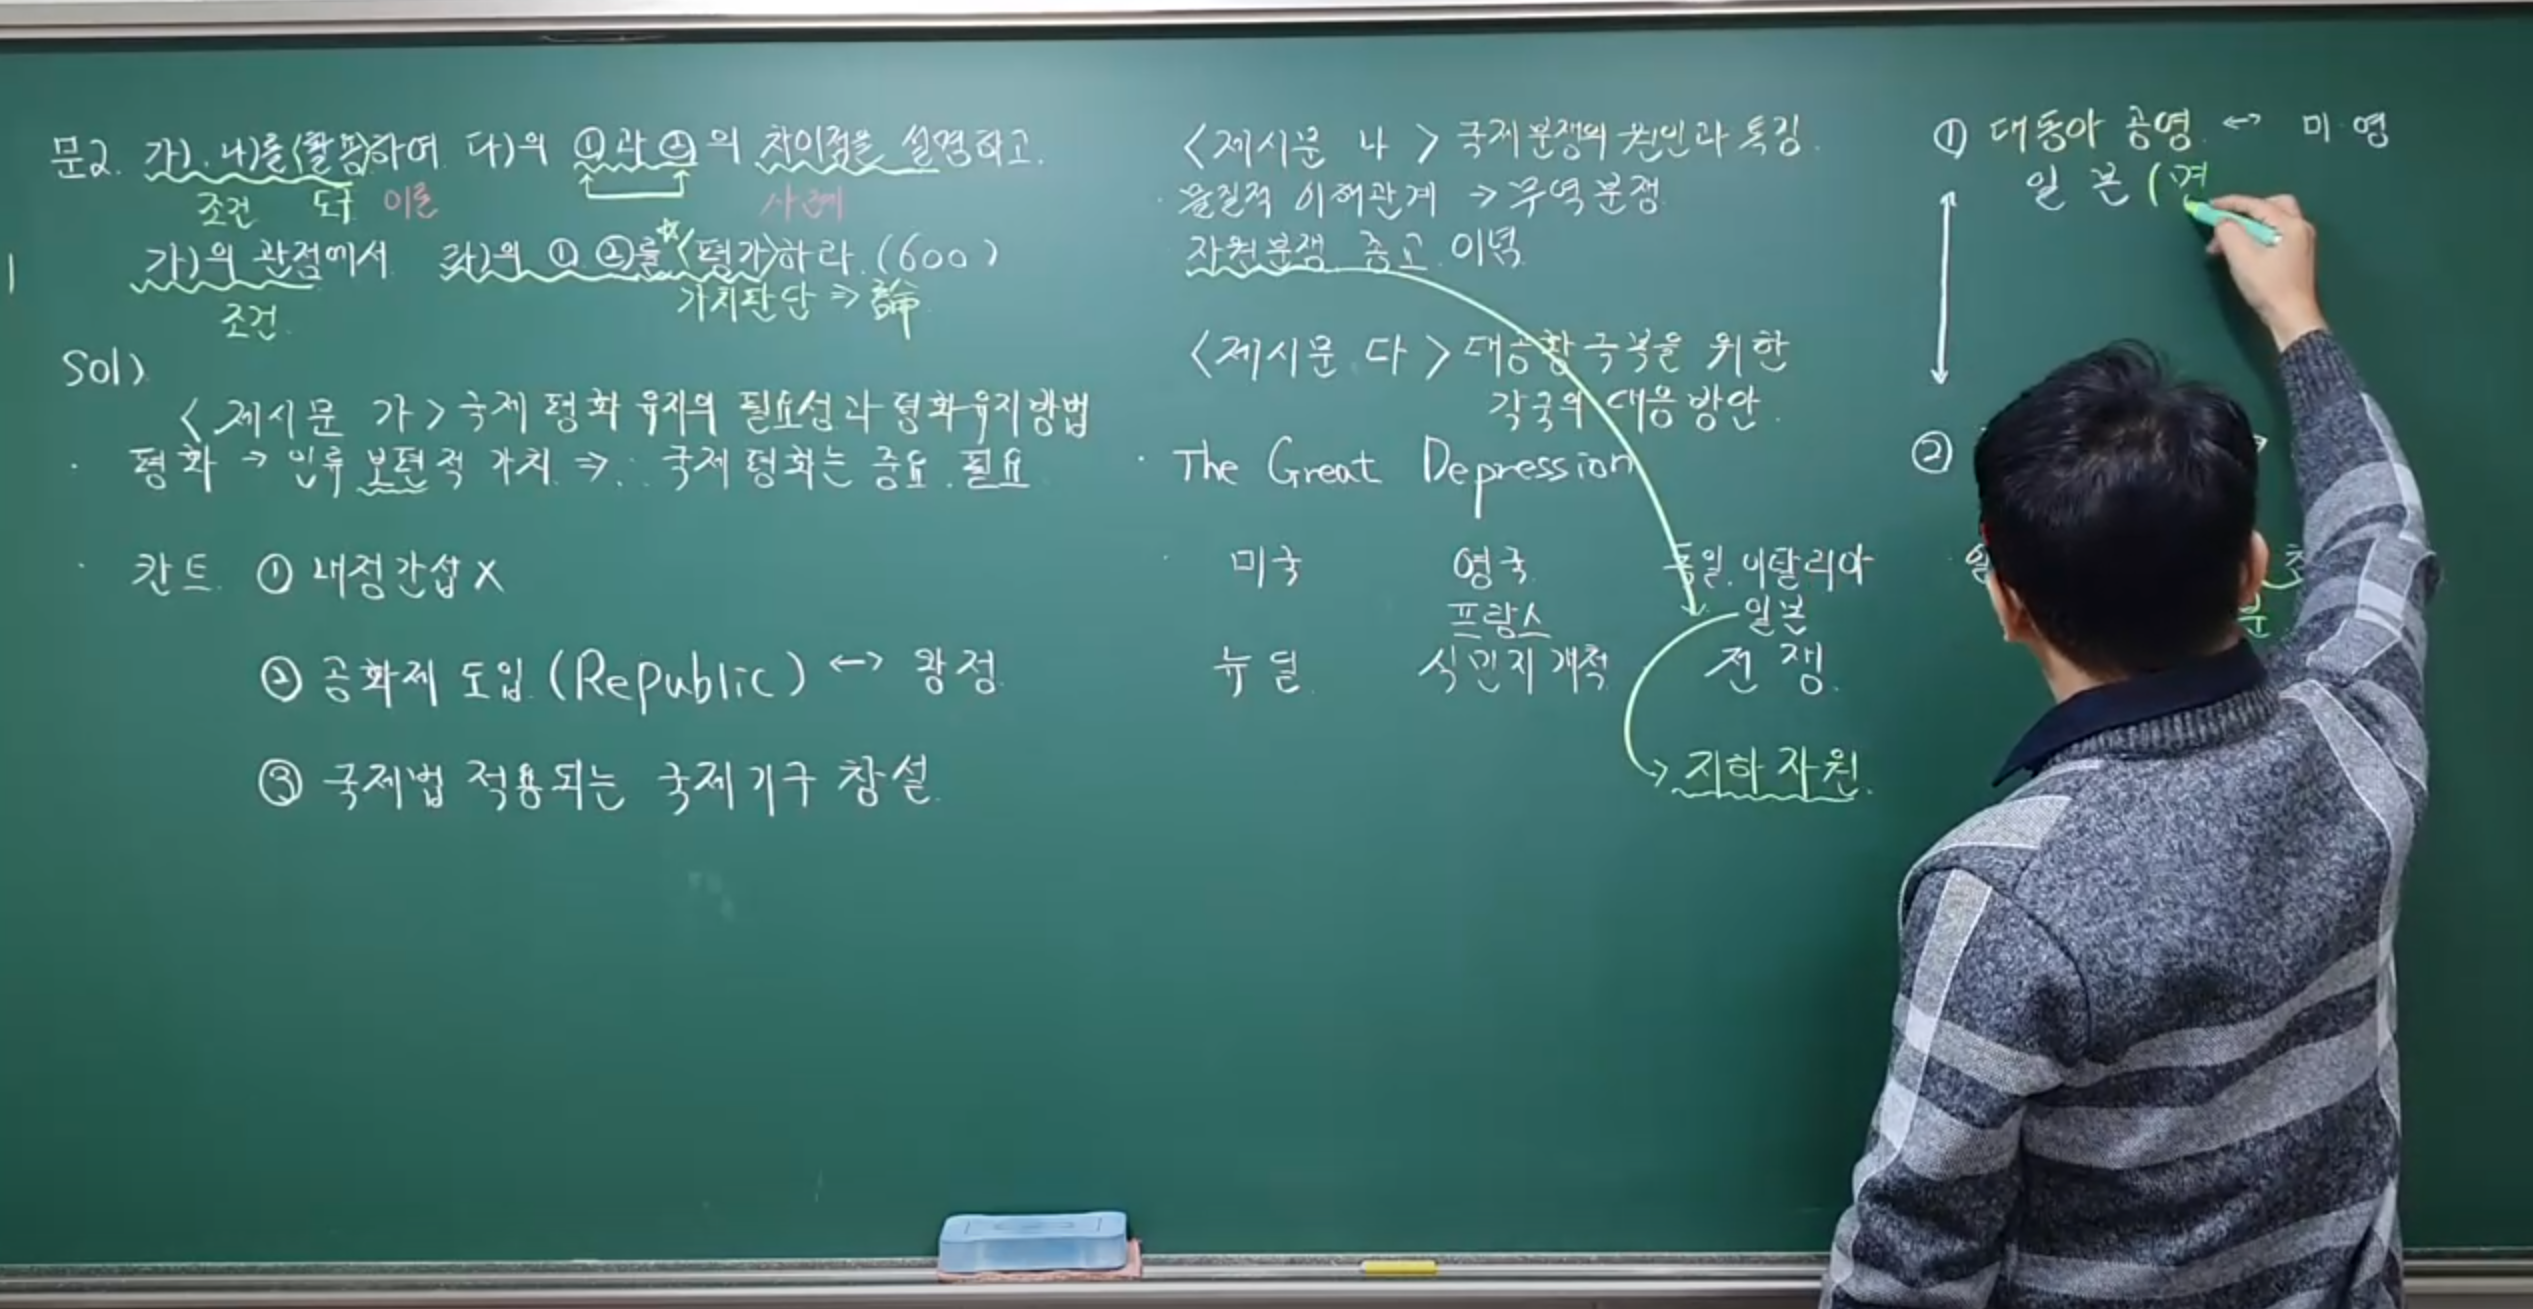 문2. 가). 나)를 <활용>하여 다)의 ①과 ②의 차이점을 설명하고.
조건 도구 이론 사례
가)의 관점에서 라)의 ① ②를 <평가>하라. (600)
조건. 가치판단 ⇒ 論
Sol)
<제시문 가> 국제 평화 유지의 필요성과 평화유지방법
· 평화 → 인류 보편적 가치. ⇒ ∴ 국제 평화는 중요. 필요
· 칸트 ① 내정간섭 X
② 공화제 도입. (Republic) ↔ 왕정.
③ 국제법 적용되는 국제기구 창설.
<제시문 나> 국제분쟁의 원인과 특징.
· 물질적 이해관계 → 무역분쟁
자원분쟁 종교. 이념
<제시문 다> 대공황 극복을 위한
각국의 대응 방안.
· The Great Depression
· 미국 영국. 독일. 이탈리아
프랑스 일본
뉴딜. 식민지 개척 전쟁.
→ 지하자원.
① 대동아 공영. ↔ 미 영
일본 (
②